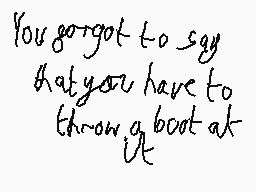 You gorgot to say
that you have to
throw a boot at
it